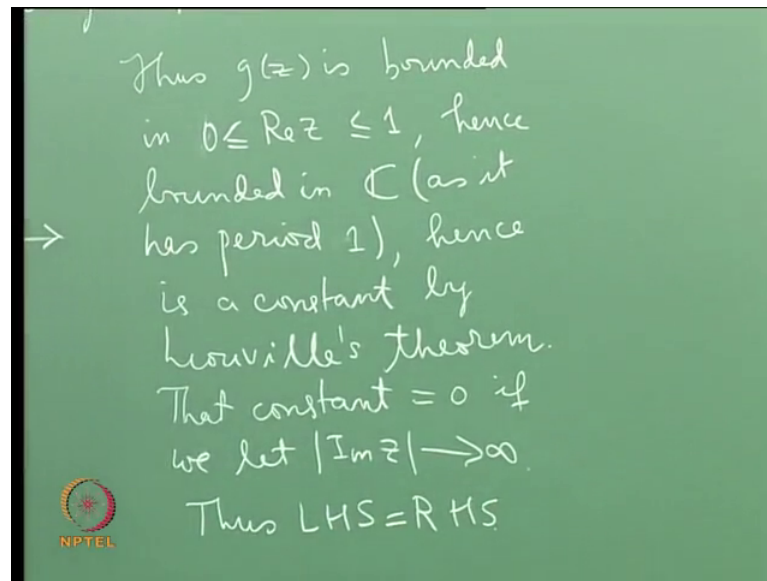 Thus g(z) is bounded
in 0 ≤ Re z ≤ 1, hence
bounded in ℂ (as it
→ has period 1), hence
is a constant by
Liouville's theorem.
That constant = 0 if
we let |Im z| → ∞.
Thus LHS = RHS.
NPTEL